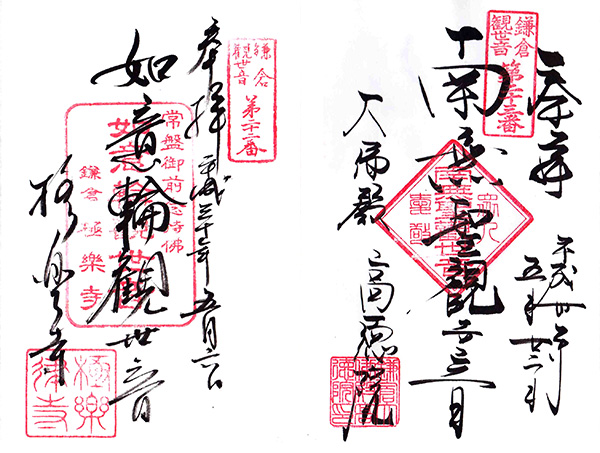 奉拝
鎌倉
観世音
第二十三番
南無聖観世音
大佛殿
高徳院
奉拝
平成三十年
五月六日
鎌倉
観世音
第二十二番
如意輪観世音
常盤御前念持佛
如意輪観世音
鎌倉
極樂寺
極楽寺
極樂
律寺